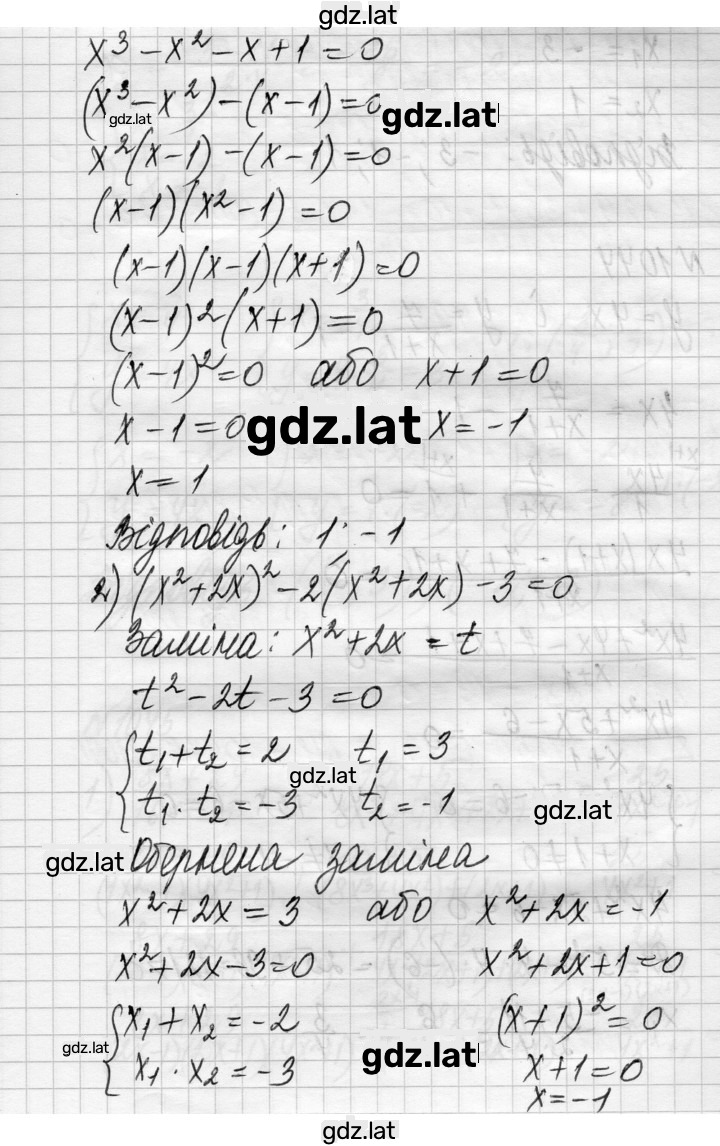 gdz.lat
x³ - x² - x + 1 = 0
(x³ - x²) - (x - 1) = 0 gdz.lat
gdz.lat
x²(x-1) - (x-1) = 0
(x-1)(x²-1) = 0
(x-1)(x-1)(x+1) = 0
(x-1)²(x+1) = 0
(x-1)² = 0 або x+1 = 0
x - 1 = 0 gdz.lat x = -1
x = 1
Відповідь: 1; -1
2) (x²+2x)² - 2(x²+2x) - 3 = 0
Заміна: x²+2x = t
t² - 2t - 3 = 0
{ t₁+t₂ = 2 t₁ = 3
gdz.lat
t₁·t₂ = -3 t₂ = -1 gdz.lat
gdz.lat Обернена заміна
x²+2x = 3 або x²+2x = -1
x²+2x-3=0 x²+2x+1=0
{ x₁+x₂ = -2 (x+1)² = 0
gdz.lat x₁·x₂ = -3 gdz.lat x+1=0
x=-1
gdz.lat